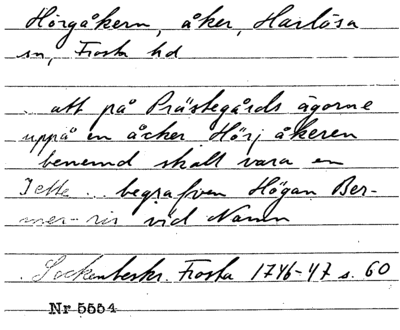 Hörgåkern, åker, Harlösa
sn, Frosta hd
. att på Prästegårds ägorne
uppå en åcker Hörj åkeren
benemd skall vara en
Jette .. begrafven Högan Ber-
mer-ris vid Namn
. Sockenbeskr. Frosta 1746-47 s. 60
Nr 5554